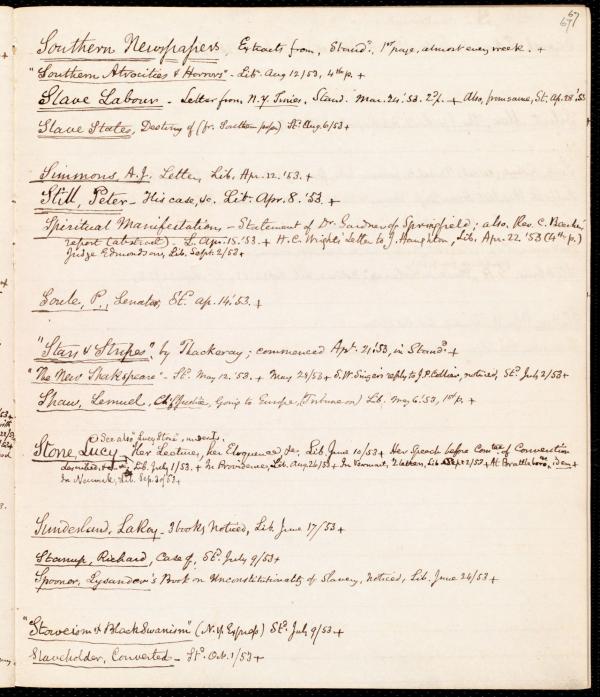 67
67
Southern Newspapers, Extracts from, Stand.d 1st page, almost every week. +
"Southern Atrocities & Horrors" - Lib. Aug 12/53, 4th p. +
Slave Labour - Letter from N.Y. Times, Stand. Mar. 24. '53. 2d p. + Also, from same, St. Ap. 28 '53
Slave States, Destiny of (fr. Southern paper) St.d Aug. 6/53 +
Simmons, A.J. Letter, Lib. Apr. 12. '53. +
Still, Peter - His case, &c. Lib. Apr. 8. '53. +
Spiritual Manifestations - Statement of Dr. Gardner of Springfield; also, Rev. C. Beecher
report (abstract) - L. Apr. 15. '53. + H.C. Wright's Letter to J. Haughton, Lib. Apr. 22 '53 (4th p.)
Judge Edmondson, Lib. Sept. 2/53 +
Soule, P., Senator, St.d Ap. 14. '53. +
"Stars & Stripes", by Thackeray; commenced Apl. 21. 53, in Stand.d +
"The New Shakspeare" - St. May 12. '53. + May 28/53 + S.W. Singer's reply to J.P. Collier, noticed, St.d July 2/53 +
Shaw, Lemuel, Ch. Justice, Going to Europe, (Tribune on) Lib. May 6. '53, 1st p. +
See also "Lucy Stone", under L.
Stone, Lucy - Her Lectures, her Eloquence, &c. Lib. June 10/53 + Her Speech before Comtee. of Convention
Lib. July 1/53. + In Providence, Lib. Aug. 26/53 + In Vermont, Lib. Sept 2/53 + At Brattleboro, idem +
In Newark, Lib. Sep. 30/53 +
Sunderland, LaRoy - 3 books, Noticed, Lib. June 17/53 +
Stanup, Richard, Case of, St.d July 9/53 +
Spooner, Lysander's Book on Unconstitutionality of Slavery, noticed, Lib. June 24/53 +
"Stoweism & Black Swanism" (N.Y. Express) St.d July 9/53. +
Slaveholder, Converted - St.d Oct. 1/53 +